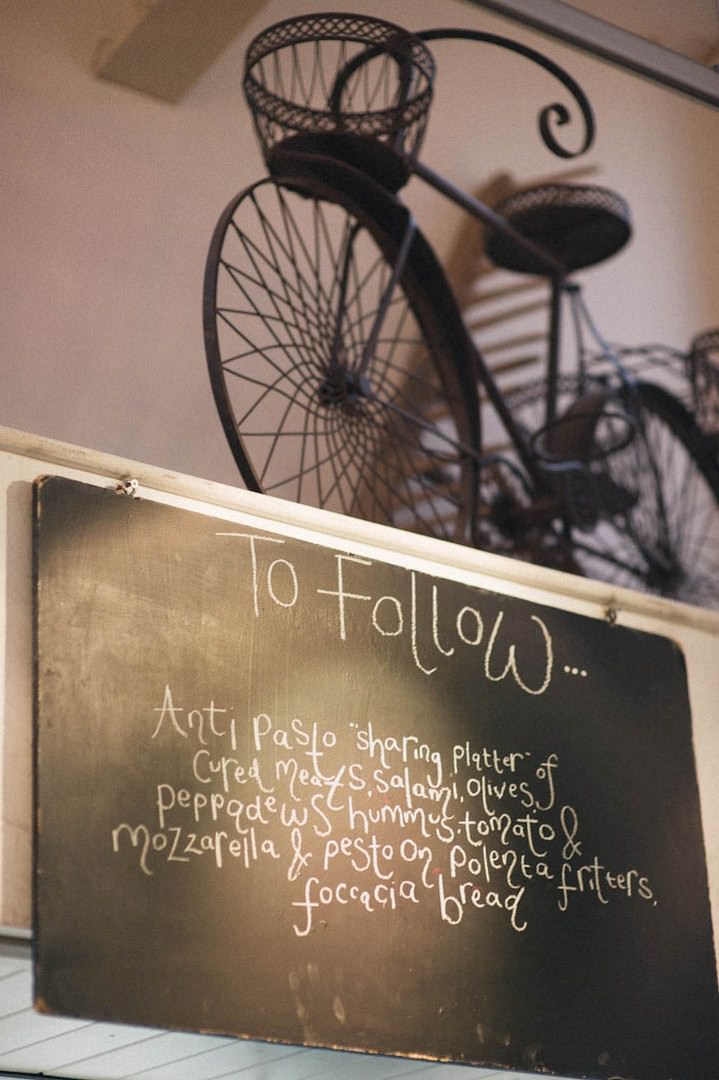 To Follow...
Anti pasto "sharing platter" of
cured meats, salami, olives,
peppadews hummus, tomato &
mozzarella & pesto on polenta fritters,
foccacia bread